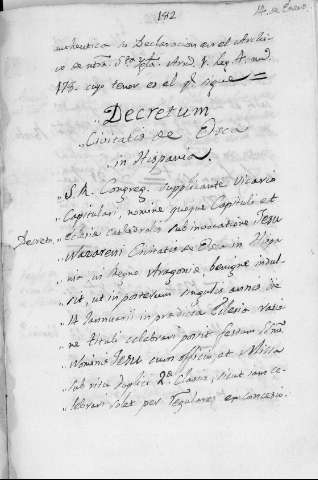 182
14. de Enero.
autentica su Declaracion en el Archi-
vo de ntra. Sta. Igla. Arm. V. Leg. A. num.
175. cuyo tenor es el qe. sigue =
Decretum
Civitatis de Osca
in Hispania.
S. R. Congreg. supplicante Vicario
„Capitulari, nomine quoque Capituli et
„Eclesiæ cathedralis sub invocatione Jesu
Decreto. „Nazareni Civitatis de Osca in Hispa
„nia in Regno Aragoniæ, benigne indul
„sit, ut in posterum singulis annis die
„14 Januarii in prædicta Eclesia ratio
„ne tituli celebrari possit festum SSmi.
„Nominis Jesu cum officio et Missa
„sub ritu duplici 2æ. Classis, sicut jam ce-
„lebrari solet per Regulares ex Concesio.